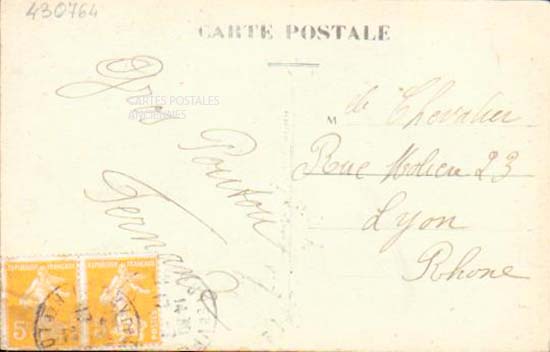 430764
CARTE POSTALE
CARTES POSTALES
ANCIENNES
Gros
Poutou
Fernand
M
Chevalier
Rue Molien 23
Lyon
Rhone
REPUBLIQUE FRANÇAISE
REPUBLIQUE FRANÇAISE
5